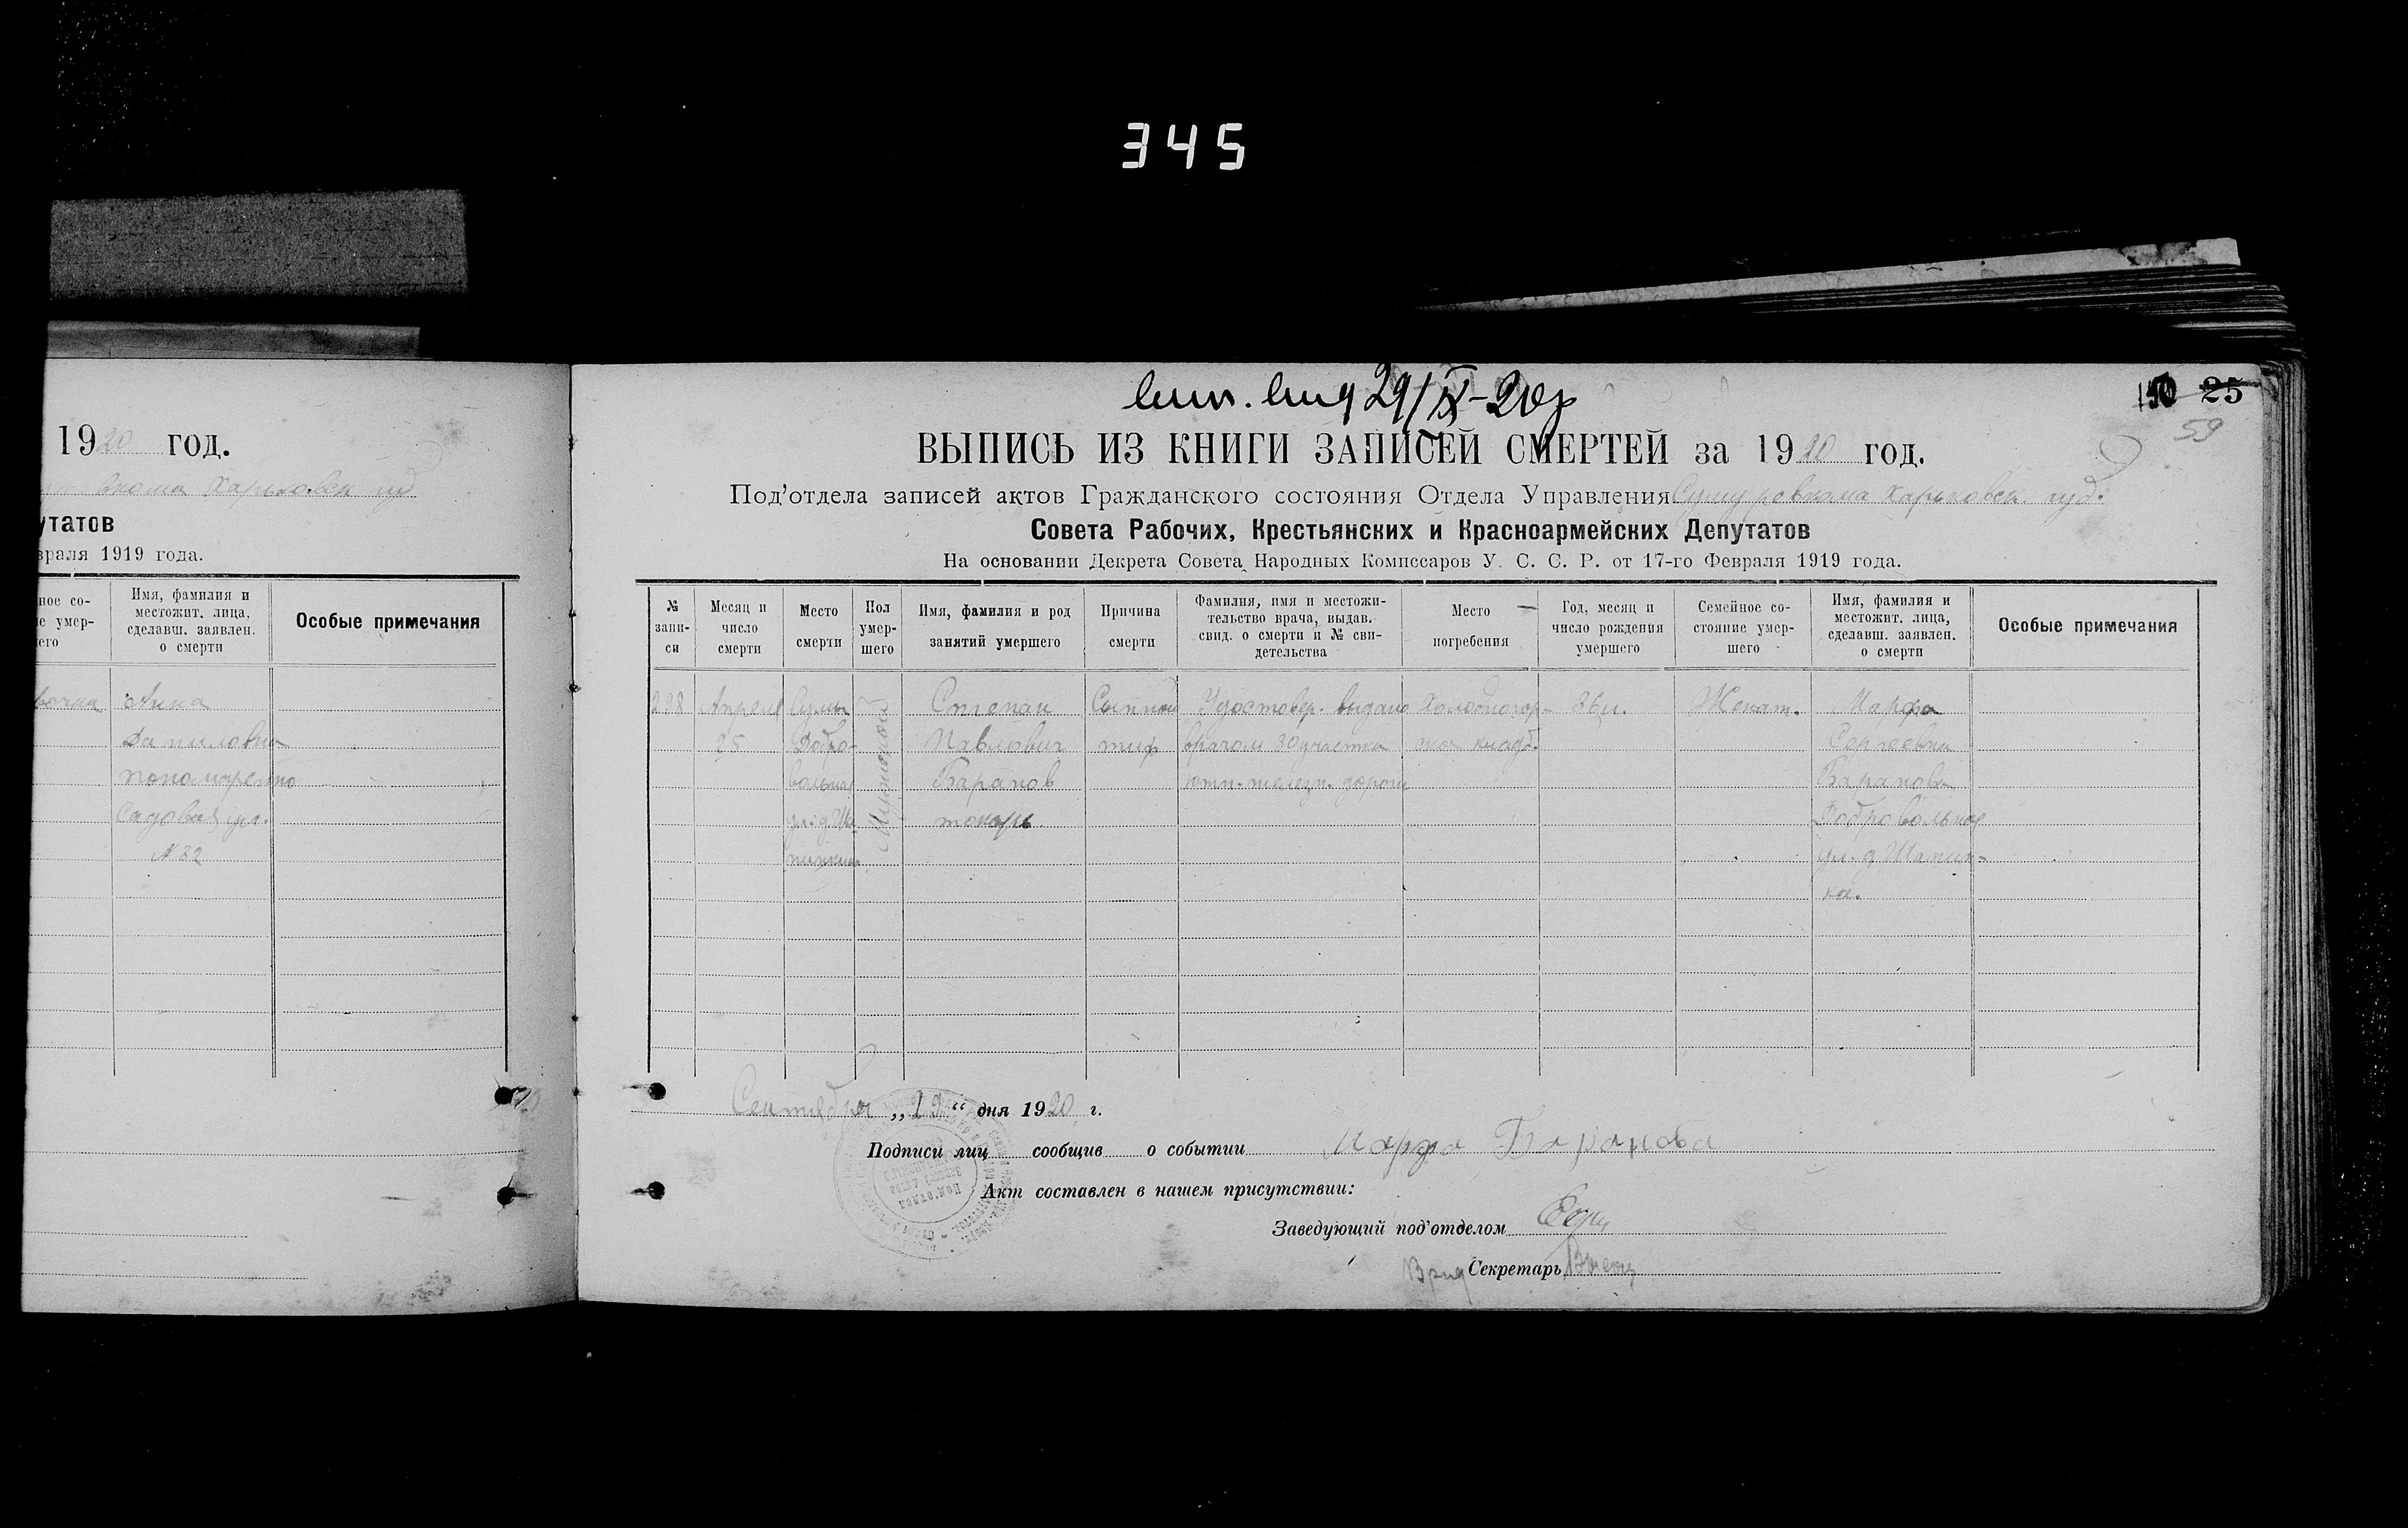 345
29/IX-20г
25
59
1920 год.
Харьковск губ
утатов
враля 1919 года.
ное со-
е умер-
его
Имя, фамилия и
местожит. лица,
сделавш. заявлен.
о смерти
Особые примечания
Анна
Даниловна
Пономаренко
Садовая ул.
№ 82
ВЫПИСЬ ИЗ КНИГИ ЗАПИСЕЙ СМЕРТЕЙ за 1920 год.
Под'отдела записей актов Гражданского состояния Отдела Управления Сумш ревкома Харьковск. губ.
Совета Рабочих, Крестьянских и Красноармейских Депутатов
На основании Декрета Совета Народных Комиссаров У. С. С. Р. от 17-го Февраля 1919 года.
№
запи-
си
Месяц и
число
смерти
Место
смерти
Пол
умер-
шего
Имя, фамилия и род
занятий умершего
Причина
смерти
Фамилия, имя и местожи-
тельство врача, выдав.
свид. о смерти и № сви-
детельства
Место
погребения
Год, месяц и
число рождения
умершего
Семейное со-
стояние умер-
шего
Имя, фамилия и
местожит. лица,
сделавш. заявлен.
о смерти
Особые примечания
298
Апреля
25
Сумы
Добро-
вольная
ул. д Ша
пинка
Мужской
Степан
Павлович
Баранов
токарь
Сыпной
тиф
Удостовер. выдано
врачом 30 участка
южн. железн. дороги
Холодногор-
ское кладб.
36 л.
Женат.
Марфа
Сергеевна
Баранова
Добровольная
ул. д Шапин-
ка.
Сентября „19“ дня 1920 г.
Подписи лиц сообщив о событии Марфа Баранова
Акт составлен в нашем присутствии:
Заведующий под'отделом
Врид Секретарь